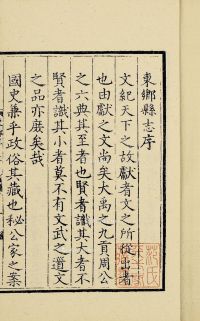 東鄉縣志序
文紀天下之故獻者文之所從出者
也由獻之文尚矣大禹之九貢周公
之六典其至者也賢者識其大者不
賢者識其小者莫不有文武之遺文
之品亦庶矣哉
國史兼乎政俗其藏也秘公家之案